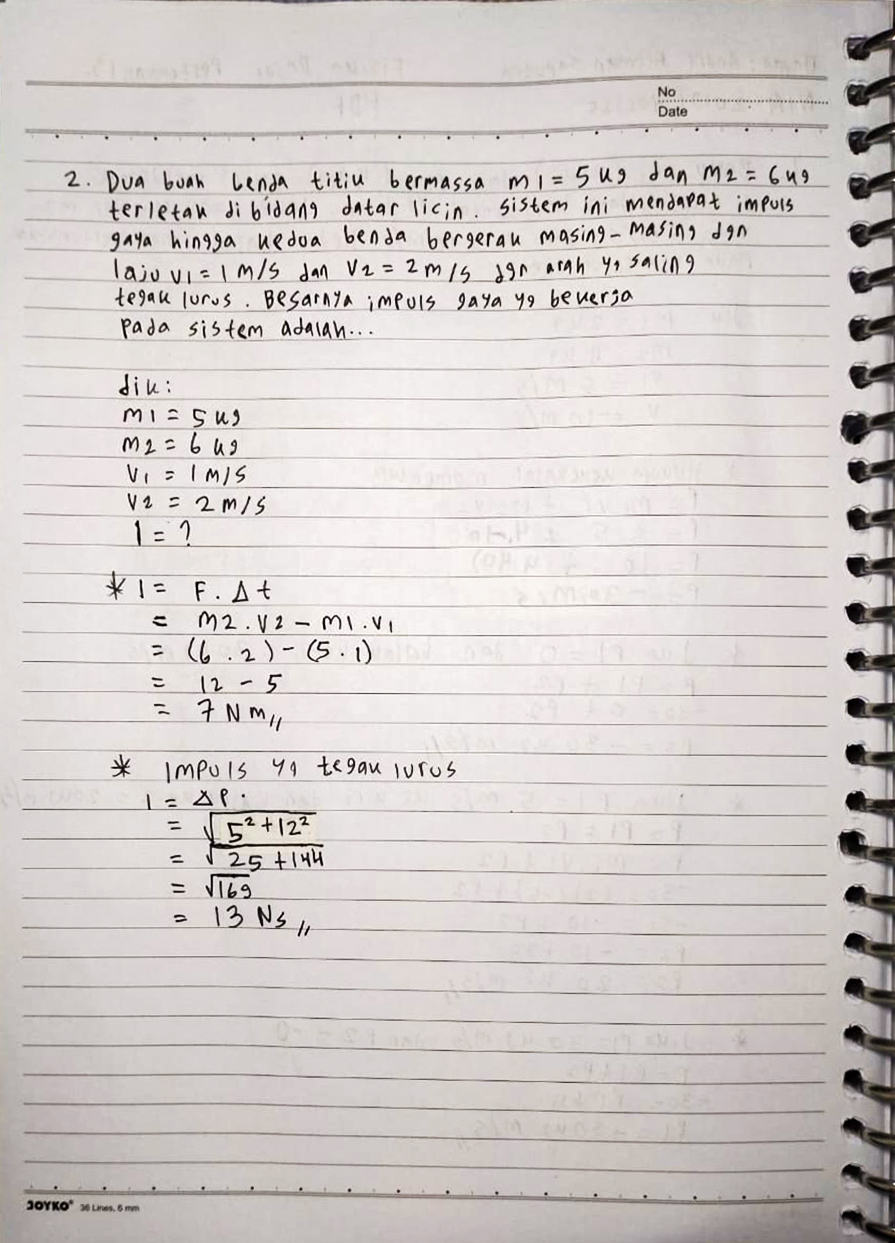 No
Date
2. Dua buah benda titik bermassa m1 = 5 kg dan m2 = 6 kg
terletak di bidang datar licin. sistem ini mendapat impuls
gaya hingga kedua benda bergerak masing-masing dgn
laju v1 = 1 m/s dan v2 = 2 m/s dgn arah yg saling
tegak lurus. Besarnya impuls gaya yg bekerja
pada sistem adalah...
dik:
m1 = 5 kg
m2 = 6 kg
v1 = 1 m/s
v2 = 2 m/s
I = ?
* I = F . Δt
= m2 . v2 - m1 . v1
= (6 . 2) - (5 . 1)
= 12 - 5
= 7 Nm //
* Impuls yg tegak lurus
I = ΔP.
= √5² + 12²
= √25 + 144
= √169
= 13 Ns //
JOYKO® 36 Lines, 6 mm